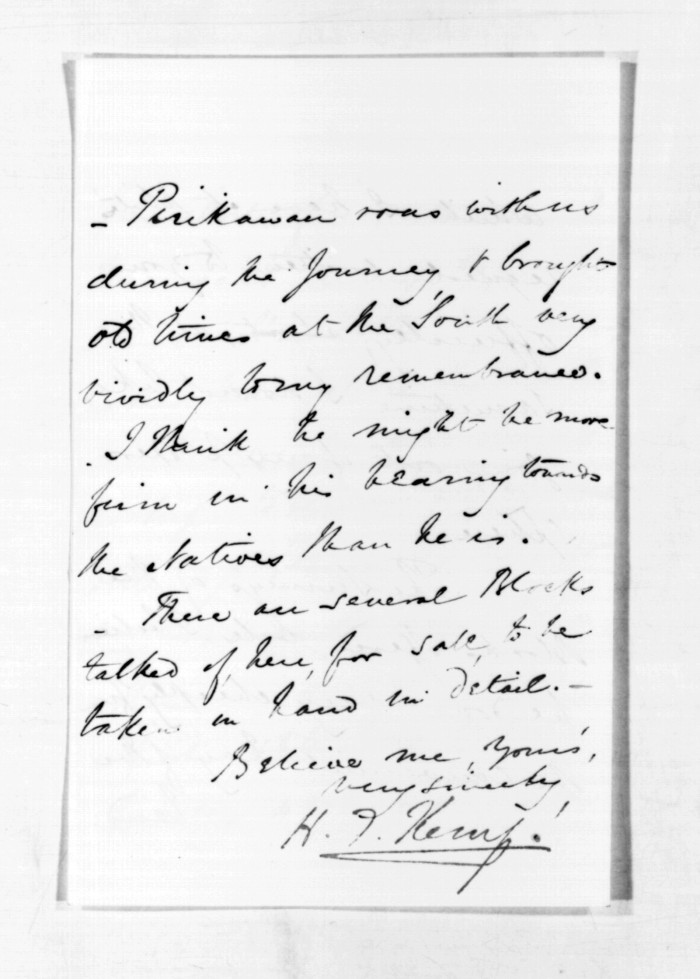 - Pirikawau was with us
during the Journey, & brought
old times at the South very
vividly to my remembrance.
. I think he might be more
firm in his bearing towards
the Natives than he is.
- There are several Blocks
talked of, here, for sale, to be
taken in hand in detail. -
Believe me, Yours,
very sincerely,
H. T. Kemp.